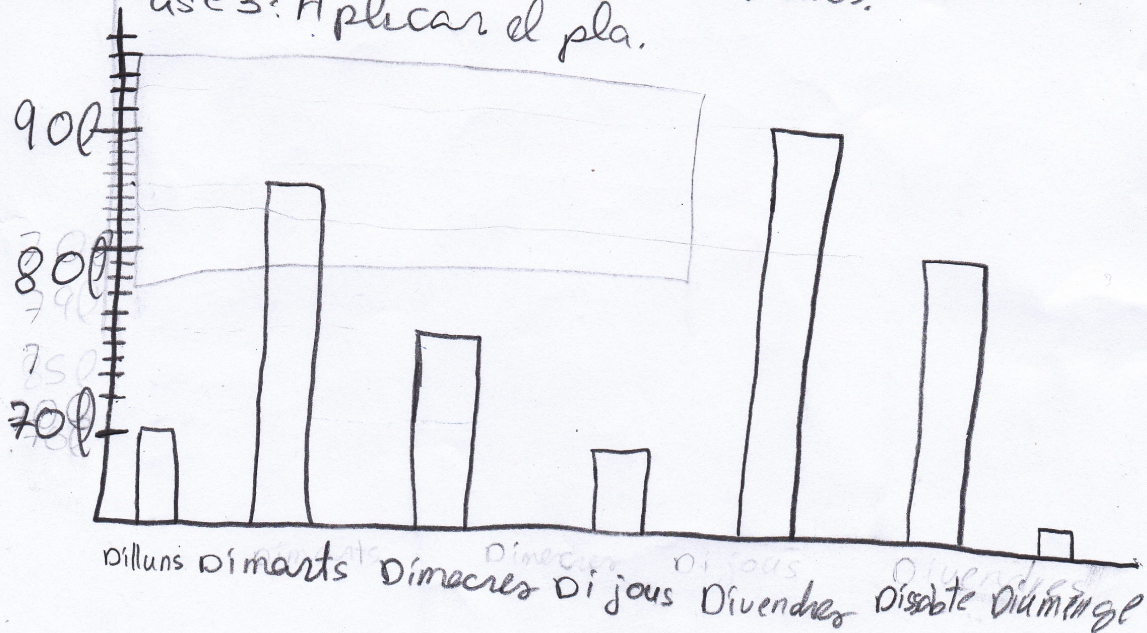 Aplicar el pla.
90l
80l
70l
Dilluns Dimarts Dimecres Dijous Divendres Dissabte Diumenge